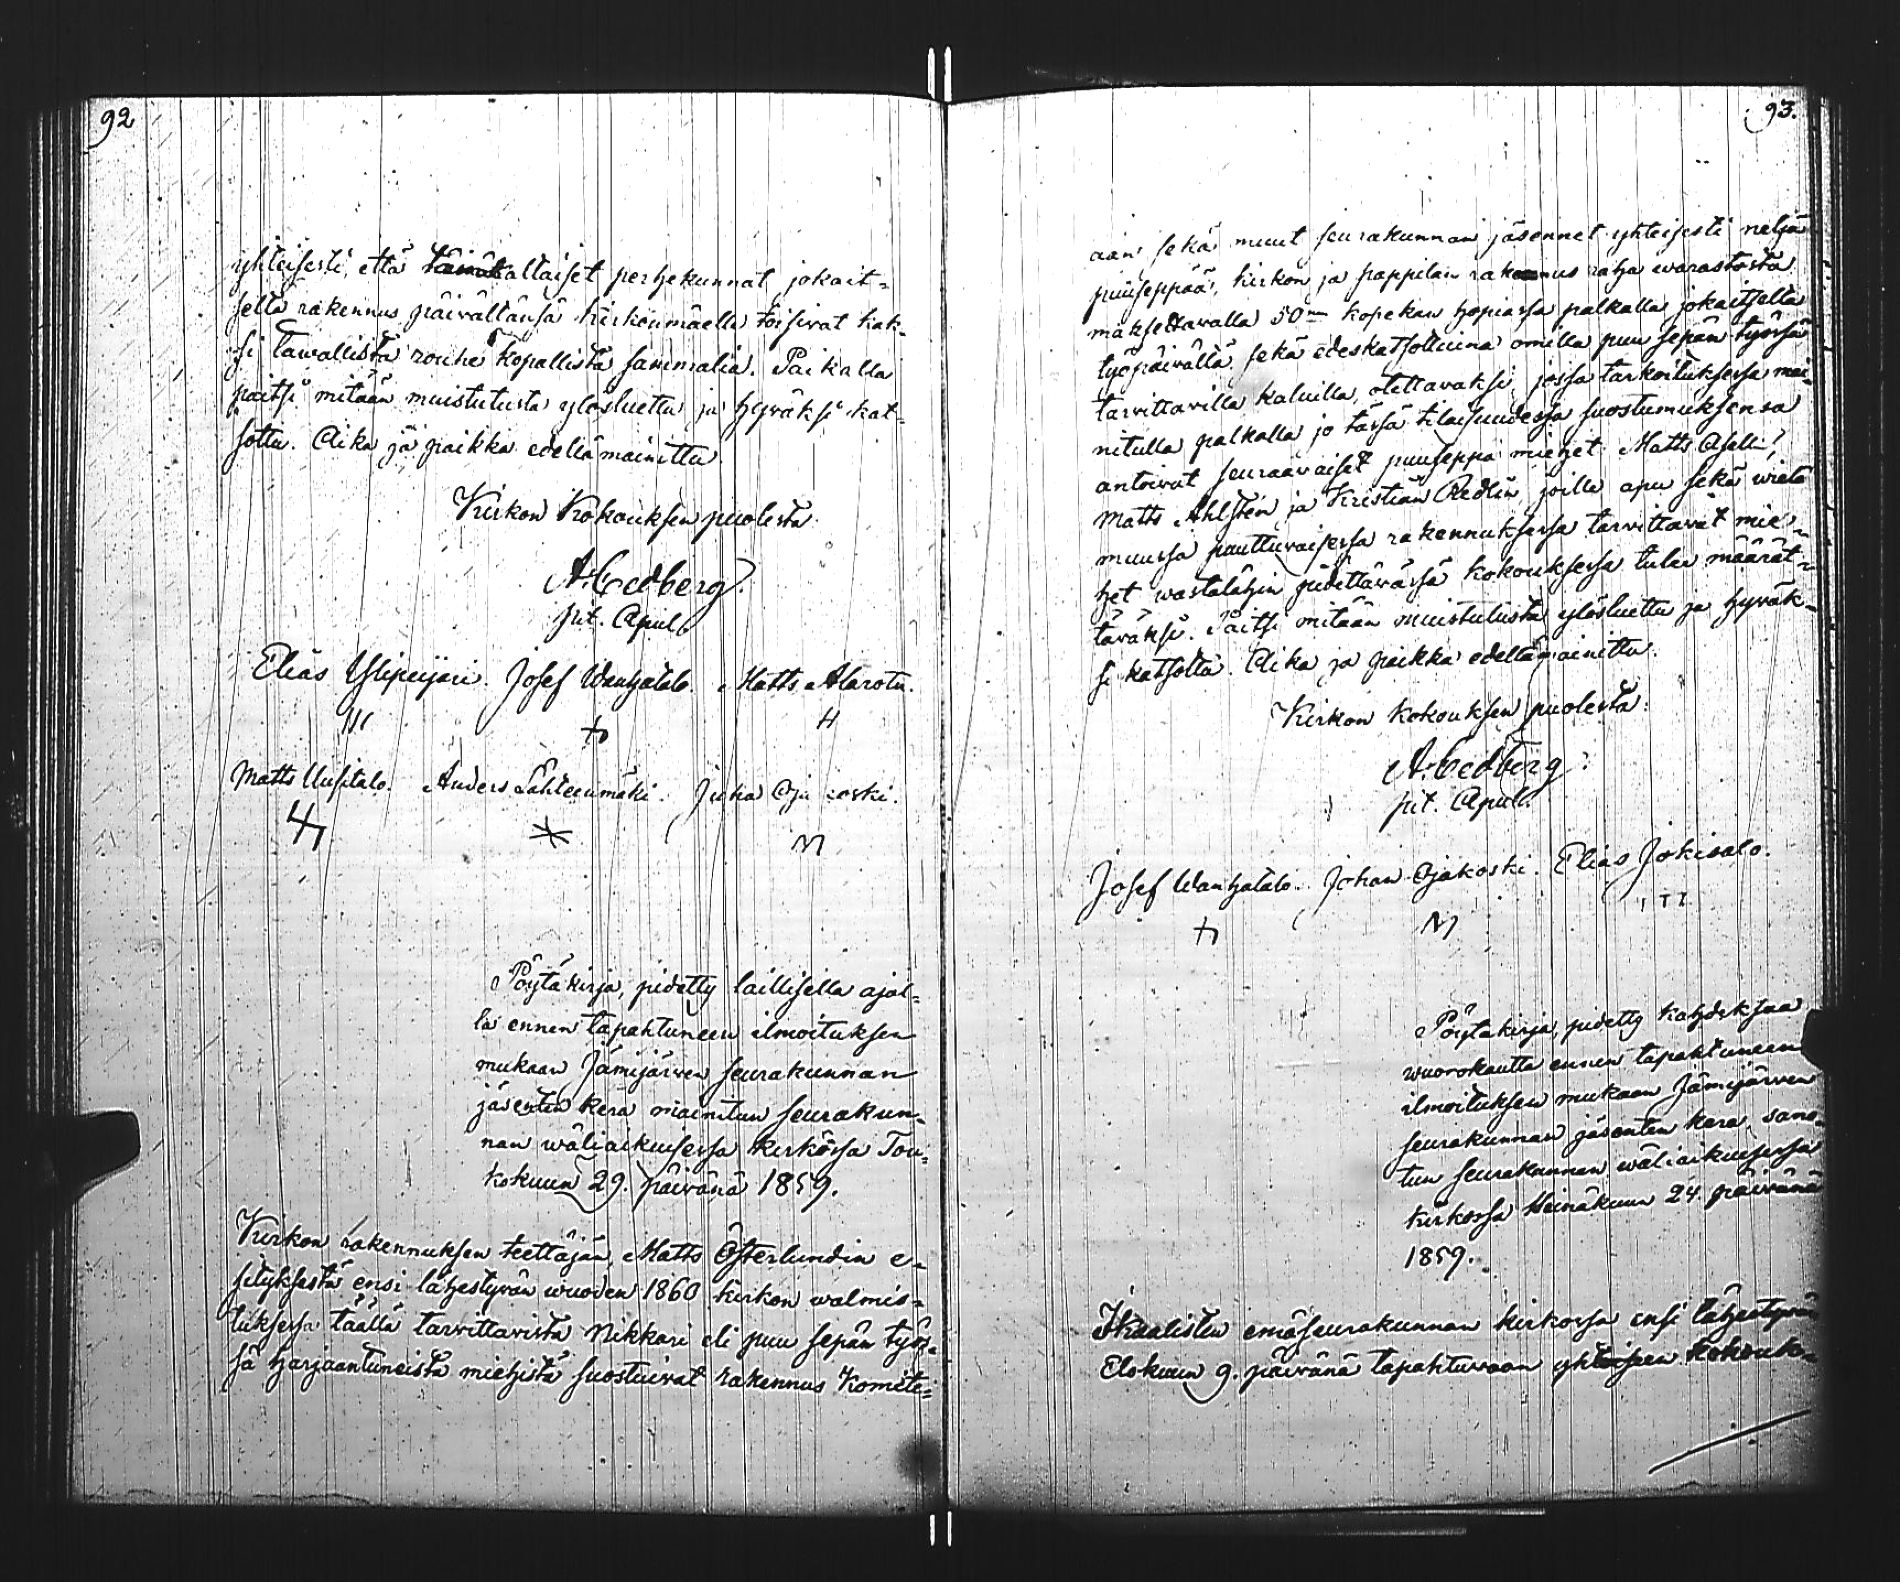 92
yhteisesti, että tämänkaltaiset perhekunnat jokait-
selta rakennus päivältänsä kirkonmäelle toisivat kak-
si tavallista rouhe kopallista sammalia. Paikalla
paitsi mitään muistutusta ylösluettu ja hyväksi kat-
sottu. Aika ja paikka edellämainittu.
Kirkon Kokouksen puolesta:
A. Cedberg.
pit. Apul.
Elias Ylipeijari. Josef Wanhatalo. Matts Alarotu.
Matts Uusitalo. Anders Lähteenmäki. Juha Ojakoski.
Pöytäkirja, pidetty laillisella ajal-
la ennen tapahtuneen ilmoituksen
mukaan Jämijärwen seurakunnan
jäsenten kera mainitun seurakun-
nan wäliaikuisessa kirkossa Tou-
kokuun 29. päivänä 1859.
Kirkon rakennuksen teettäjän, Matts Österlundin e-
sityksestä ensi lähestyvän wuoden 1860 kirkon walmis-
tuksessa täällä tarvittavista Nikkari eli puu sepän työs-
sä harjaantuneista miehistä suostuivat rakennus Komite-
93.
aan sekä muut seurakunnan jäsennet yhteisesti neljä
puuseppää, kirkon ja pappilan rakennus raha warastosta
maksettavalla 50nen kopekan hopiassa palkalla jokaitselta
työpäivältä, sekä edeskatsottuina omilla puu sepän työssä
tarvittavilla kaluilla, otettavaksi, jossa tarkoituksessa mai-
nitulla palkalla jo tässä tilaisuudessa suostumuksensa
antoivat seuraavaiset puuseppä miehet: Matts Asell,
Matts Ahlsten ja Kristian Redlin joille apu sekä wielä
muussa puuttuvaisessa rakennuksessa tarvittavat mie-
het wastalähin pidettävässä kokouksessa tulee määrät-
täväksi. Paitsi mitään muistutusta ylösluettu ja hyväk-
si katsottu. Aika ja paikka edellämainittu.
Kirkon Kokouksen puolesta:
A. Cedberg.
pit. Apul.
Josef Wanhatalo. Johan Ojakoski. Elias Jokisalo.
Pöytäkirja, pidetty kahdeksaa
wuorokautta ennen tapahtuneen
ilmoituksen mukaan Jämijärwen
seurakunnan jäsenten kera, sano-
tun seurakunnan wäliaikuisessa
kirkossa Heinäkuun 24. päivänä
1859.
Ikaalisten emäseurakunnan kirkossa ensi lähestyvän
Elokuun 9. päivänä tapahtuvaan yhteiseen kokouk-